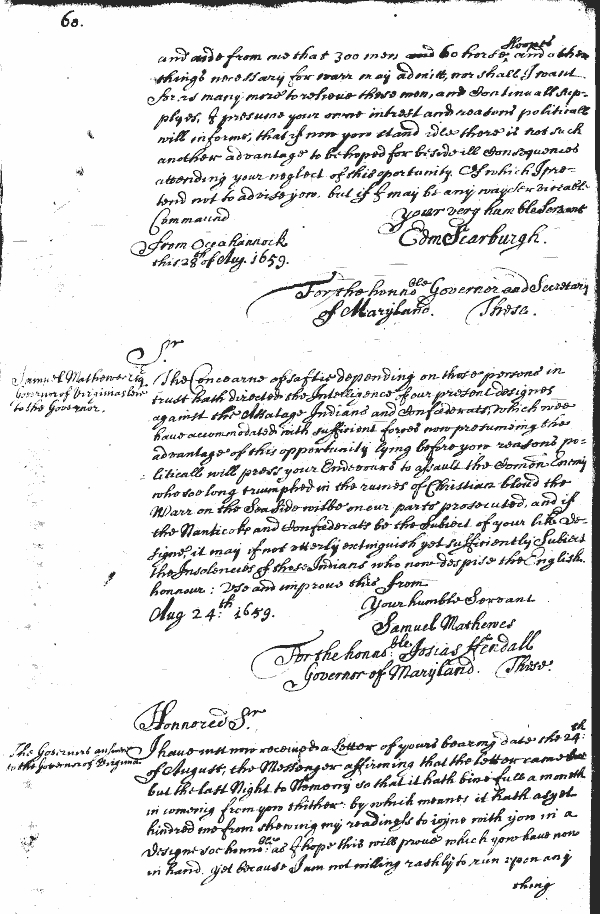 60.
Sloopes
and aide from me that 300 men and 60 horse, and other
things necessary for warr may admitt, nor shall I want
for as many more to relieve these men, and Continuall Sup-
plyes, I presume your owne intrest and reasons politicall
will informe, that if now yow stand idle there is not such
another advantage to be hoped for beside ill Consequences
attending your neglect of this oportunity. Of which I pre-
tend not to advise yow, but if I may be any way Serviceable
Command
Your very humble Servant
Edm Scarburgh.
From Ocqahannock
this 28th of Aug. 1659.
For the honnoble Governor and Secretary
of Maryland. These.
Sr
Samuel Mathewes
Governor of Virginia
to the Governor.
The Concearne of saftie depending on those persons in
trust hath directed the Intelligence of our present designes
against the Assatage Indians and Confederats, which wee
have accommodated with sufficient forces now presuming the
advantage of this opportunity lying before yow reasons po-
liticall will press your Endevours to assault the Comon Enemy
who so long triumphed in the ruines of Christian bloud the
Warr on the Sea side wilbe on our parts prosecuted, and if
the Nanticoke and Confederats be the Subiect of your like De-
signe, it may if not utterly extinguish yet sufficiently Subiect
the Insolencies of these Indians who now despise the English
honnour: Use and improve this from
Your humble Servant
Aug 24.th 1659.
Samuel Mathewes
For the honnoble Josias Fendall
Governor of Maryland. These.
Honnored Sr
The Governors answer
to the Governor of Virginia
I have just now received a Letter of yours bearing date the 24th
of August, the Messenger affirming that the letter came
but the last Night to so that it hath bine full a month
in comeing from yow thither, by which meanes it hath as yet
hindred me from shewing my readiness to ioyne with yow in a
Designe soe honnoble as I hope this will prove which yow have now
in hand. yet because I am not willing rashly to run upon any
thing